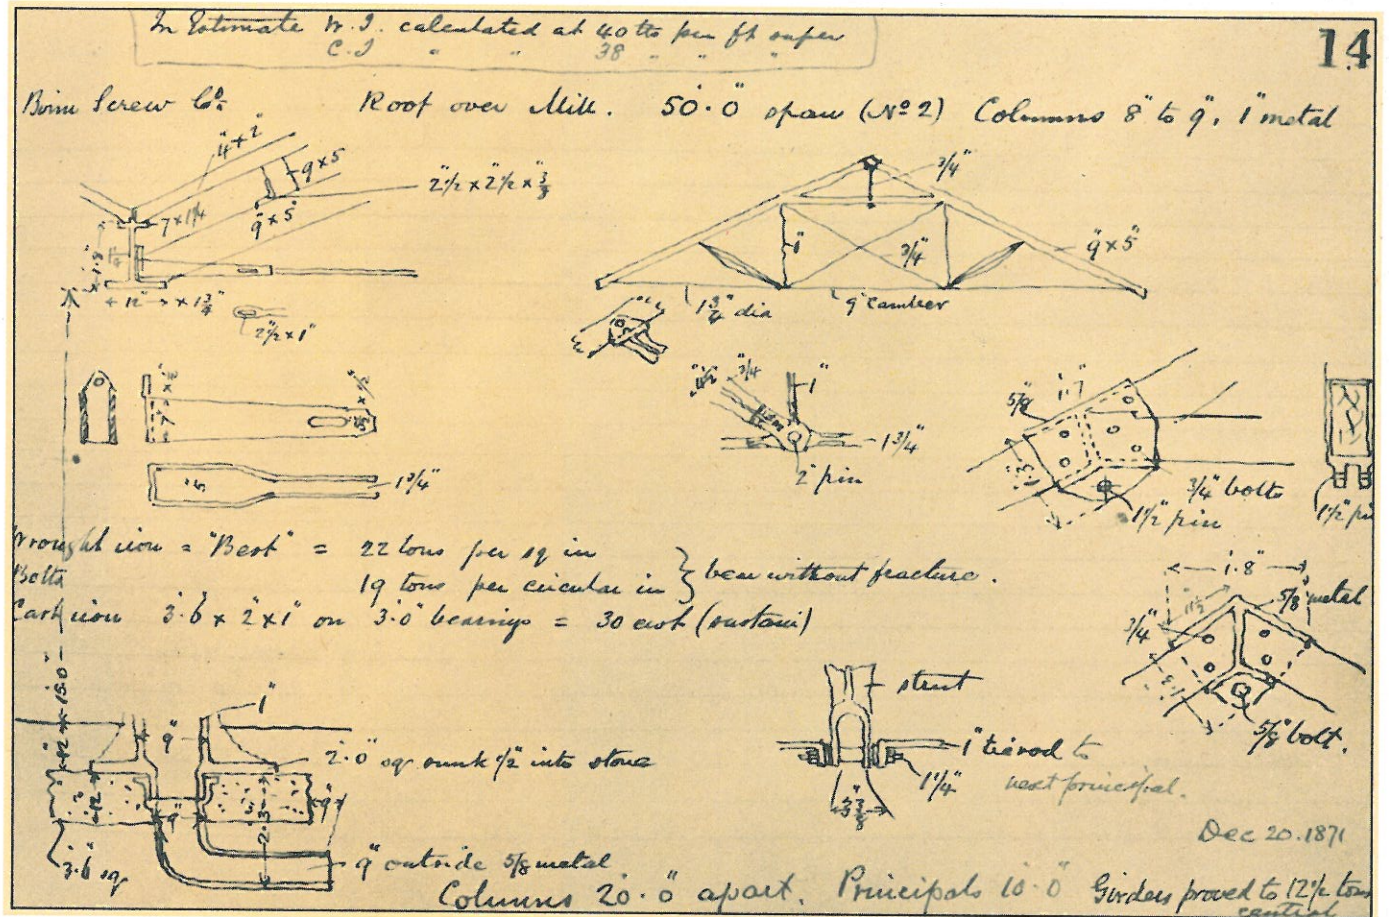 In Estimate W.I. calculated at 40 lbs per ft super
C.I " " 38 " " "
14
Birm Screw Co. Roof over Mill. 50'.0" span (No 2) Columns 8" to 9", 1" metal
4" x 2"
9 x 5
2"1/2 x 2"1/2 x "3/8
7 x 1 1/4
9" x 5"
12" x 1 3/4"
2"1/2 x 1"
3/4"
1"
3/4"
9" x 5"
1 3/4" dia
9" camber
7" x
1 3/4"
3/4"
1"
1 3/4"
2" pin
5/8"
1'.7"
1'.3"
3/4" bolts
1 1/2" pin
1 1/2" pin
Wrought iron = "Best" = 22 tons per sq in
Bolts 19 tons per circular in } bear without fracture.
Cast iron 3'.6" x 2" x 1" on 3'.0" bearings = 30 cwt (sustain)
1'.8"
5/8" metal
3/4"
5/8" bolt.
strut
1" tie rod to
next principal.
1 1/4"
2 3/8"
15'.0"
1"
9"
2'.0" sq sunk 1/2" into stone
12"
9"
2'.3"
9"
3'.6" sq
9" outside 5/8 metal
Dec 20. 1871
Columns 20'.0" apart. Principals 10'.0" Girders proved to 12 1/2 tons
central